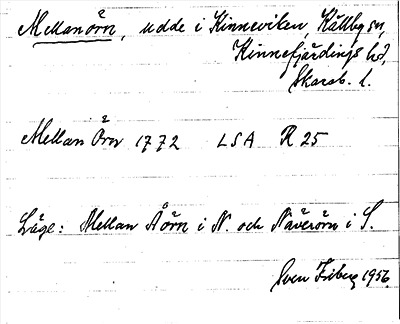 Mellanörn, udde i Kinneviken, Källby sn,
Kinnefjärdings hd,
Skarab. l.
Mellan Örn 1772 LSA R 25
Läge: Mellan Åörn i N. och Näverörn i S.
Sven Friberg 1956